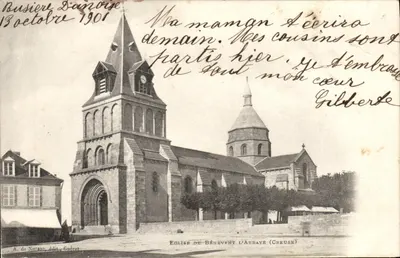 Busière Dunoise
18 octobre 1901
Ma maman t'écrira
demain. Mes cousins sont
partis hier. Je t'embrasse
de tout mon cœur
Gilberte
EGLISE DE BÉNÉVENT L'ABBAYE (CREUSE)